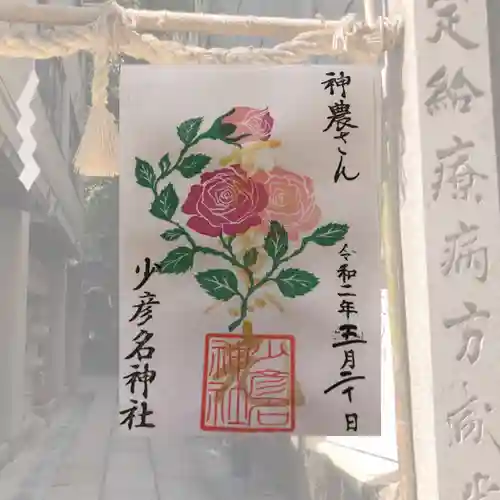 神農さん
令和二年五月二十日
少彦名神社
少彦名
神社
定給療病方咸